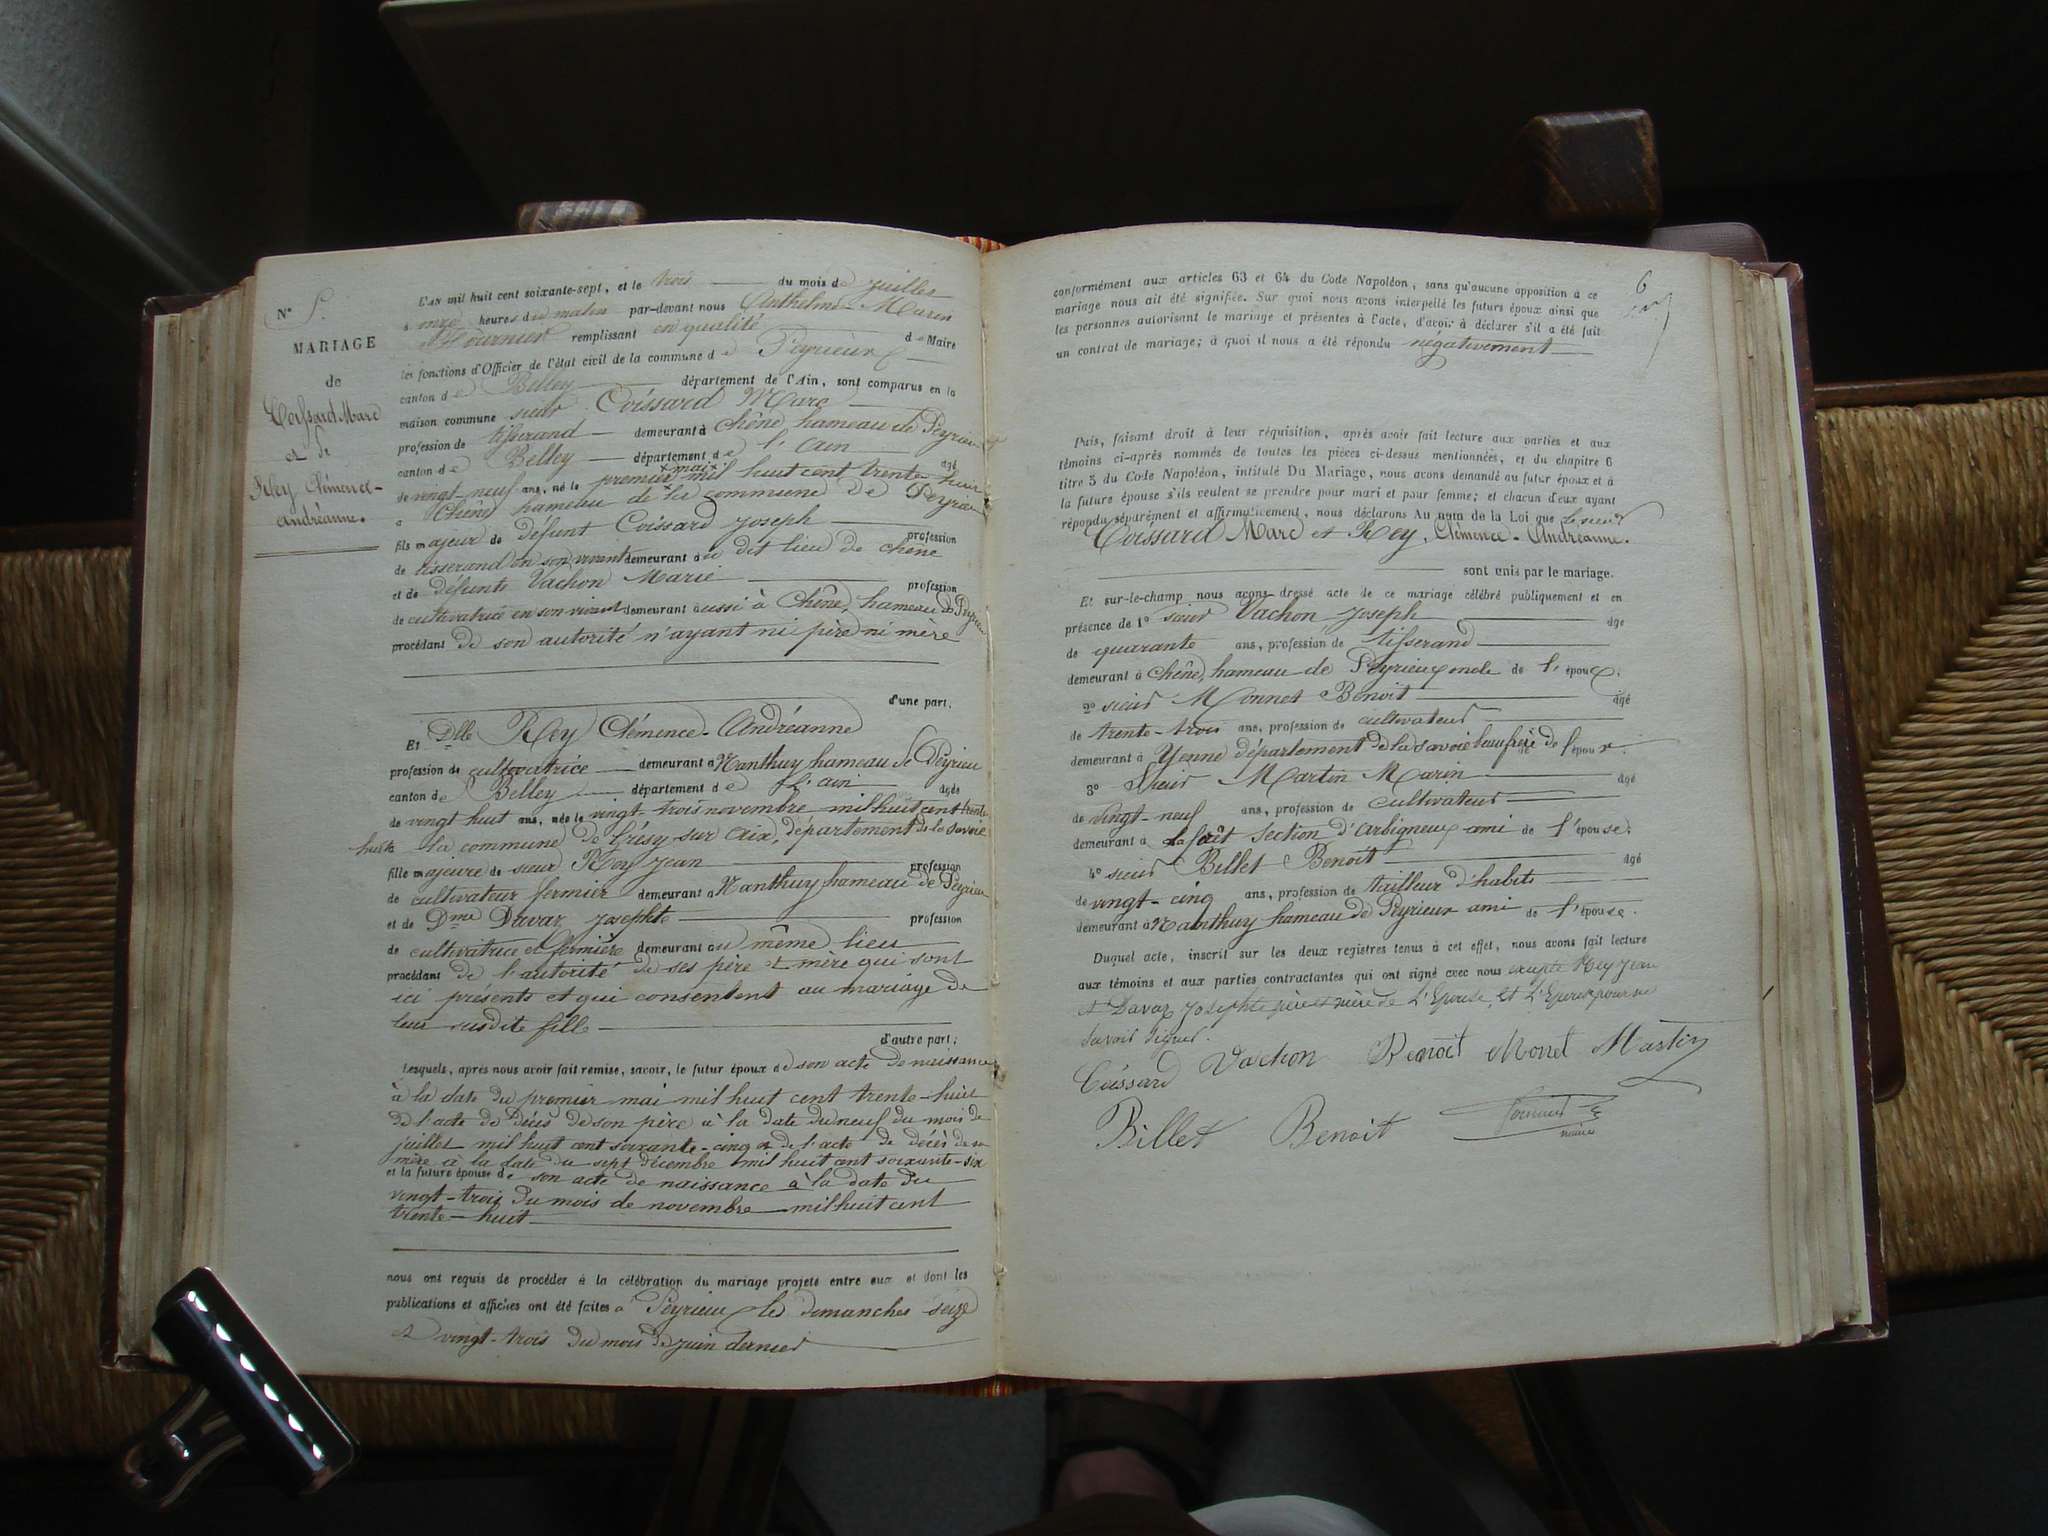 N° 5.
MARIAGE
de
Coissard Marc
et de
Rey Clémence-
Andréanne.
L'AN mil huit cent soixante-sept, et le trois du mois de juillet
à onze heures du matin par-devant nous Anthelme Marin
Fournier remplissant en qualité de Maire
les fonctions d'Officier de l'état civil de la commune de Peyrieux
canton de Belley département de l'Ain, sont comparus en la
maison commune sieur Coissard Marc
profession de tisserand demeurant à Chêne, hameau de Peyrieu
canton de Belley département de l'ain âgé
de vingt-neuf ans, né le premier mai mil huit cent trente-huit
à Chêne hameau de la commune de Peyrieu
fils majeur de défunt Coissard Joseph profession
de tisserand en son vivant demeurant au dit lieu de chêne
et de défunte Vachon Marie profession
de cultivatrice en son vivant demeurant aussi à Chêne, hameau de Peyrieu
procédant de son autorité n'ayant ni père ni mère
d'une part,
Et Dlle Rey Clémence-Andréanne
profession de cultivatrice demeurant à Nanthuy hameau de Peyrieu
canton de Belley département de l'ain âgée
de vingt huit ans, née le vingt-trois novembre mil huit cent trente
huit à la commune de Grésy sur aix, département de la Savoie
fille majeure de sieur Rey Jean profession
de cultivateur fermier demeurant à Nanthuy hameau de Peyrieu
et de Dme Davat Josephte profession
de cultivatrice et fermière demeurant au même lieu
procédant de l'autorité de ses père et mère qui sont
ici présents et qui consentent au mariage de
leur susdite fille
d'autre part;
Lesquels, après nous avoir fait remise, savoir, le futur époux de son acte de naissance
à la date du premier mai mil huit cent trente-huit
de l'acte de décès de son père à la date du neuf du mois de
juillet mil huit cent soixante-cinq et de l'acte de décès de sa
mère à la date du sept décembre mil huit cent soixante-six
et la future épouse de son acte de naissance à la date du
vingt-trois du mois de novembre mil huit cent
trente-huit
nous ont requis de procéder à la célébration du mariage projeté entre eux et dont les
publications et affiches ont été faites à Peyrieu les demanches seize
et vingt-trois du mois de juin dernier
6
conformément aux articles 63 et 64 du Code Napoléon, sans qu'aucune opposition à ce
mariage nous ait été signifiée. Sur quoi nous avons interpellé les futurs époux ainsi que
les personnes autorisant le mariage et présentes à l'acte, d'avoir à déclarer s'il a été fait
un contrat de mariage; à quoi il nous a été répondu négativement
Puis, faisant droit à leur réquisition, après avoir fait lecture aux parties et aux
témoins ci-après nommés de toutes les pièces ci-dessus mentionnées, et du chapitre 6
titre 5 du Code Napoléon, intitulé Du Mariage, nous avons demandé au futur époux et à
la future épouse s'ils veulent se prendre pour mari et pour femme; et chacun d'eux ayant
répondu séparément et affirmativement, nous déclarons Au nom de la Loi que le sieur
Coissard Marc et Rey, Clémence-Andréanne.
sont unis par le mariage.
Et sur-le-champ nous avons dressé acte de ce mariage célébré publiquement et en
présence de 1° sieur Vachon Joseph âgé
de quarante ans, profession de tisserand
demeurant à Chêne, hameau de Peyrieux oncle de l'époux.
2° sieur Monnet Benoit âgé
de trente-trois ans, profession de cultivateur
demeurant à Yenne département de la savoie beau frère de l'époux.
3° Sieur Martin Marin âgé
de vingt-neuf ans, profession de cultivateur
demeurant à la forêt section d'arbigneux ami de l'épouse.
4° sieur Billet Benoit âgé
de vingt-cinq ans, profession de tailleur d'habits
demeurant à Nanthuy hameau de Peyrieux ami de l'épouse.
Duquel acte, inscrit sur les deux registres tenus à cet effet, nous avons fait lecture
aux témoins et aux parties contractantes qui ont signé avec nous excepté Rey Jean
et Davat Josephte père et mère de l'Epouse, et l'Epouse pour ne
savoir signer.
Coissard Vachon Benoit Monet Martin
Billet Benoit Fournier
maire